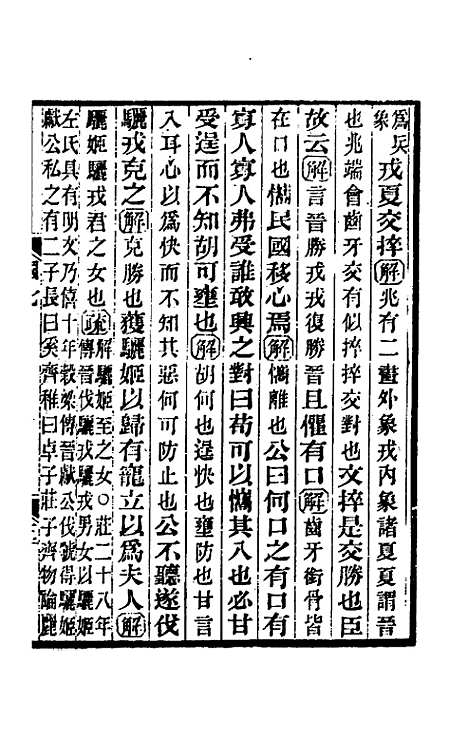 為兵象戎夏交捽解兆有二畫外象戎內象諸夏夏謂晉
也兆端會齒牙交有似捽捽交對也交捽是交勝也臣
故云解言晉勝戎戎復勝晉且懼有口解齒牙銜骨皆
在口也㒞民國移心焉解㒞離也公曰何口之有口有
寡人寡人弗受誰敢興之對曰苟可以㒞其入也必甘
受逞而不知胡可壅也解胡何也逞快也壅防也甘言
入耳心以為快而不知其惡何可防止也公不聽遂伐
驪戎克之解克勝也獲驪姬以歸有寵立以為夫人解
驪姬驪戎君之女也疏解驪姬至之女○莊二十八年
傳晉伐驪戎驪戎男女以驪姬
左氏具有明文乃僖十年穀梁傳晉獻公伐虢得驪姬
獻公私之有二子長曰奚齊稚曰卓子莊子齊物論麗